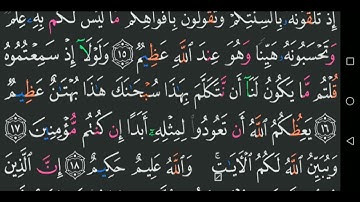 إِذْ تَلَقَّوْنَهُۥ بِأَلْسِنَتِكُمْ وَتَقُولُونَ بِأَفْوَاهِكُم مَّا لَيْسَ لَكُم بِهِۦ عِلْمٌ
وَتَحْسَبُونَهُۥ هَيِّنًا وَهُوَ عِندَ ٱللَّهِ عَظِيمٌ ١٥ وَلَوْلَآ إِذْ سَمِعْتُمُوهُ
قُلْتُم مَّا يَكُونُ لَنَآ أَن نَّتَكَلَّمَ بِهَٰذَا سُبْحَٰنَكَ هَٰذَا بُهْتَٰنٌ عَظِيمٌ
١٦ يَعِظُكُمُ ٱللَّهُ أَن تَعُودُوا۟ لِمِثْلِهِۦٓ أَبَدًا إِن كُنتُم مُّؤْمِنِينَ ١٧
وَيُبَيِّنُ ٱللَّهُ لَكُمُ ٱلْءَايَٰتِ ۚ وَٱللَّهُ عَلِيمٌ حَكِيمٌ ١٨ إِنَّ ٱلَّذِينَ